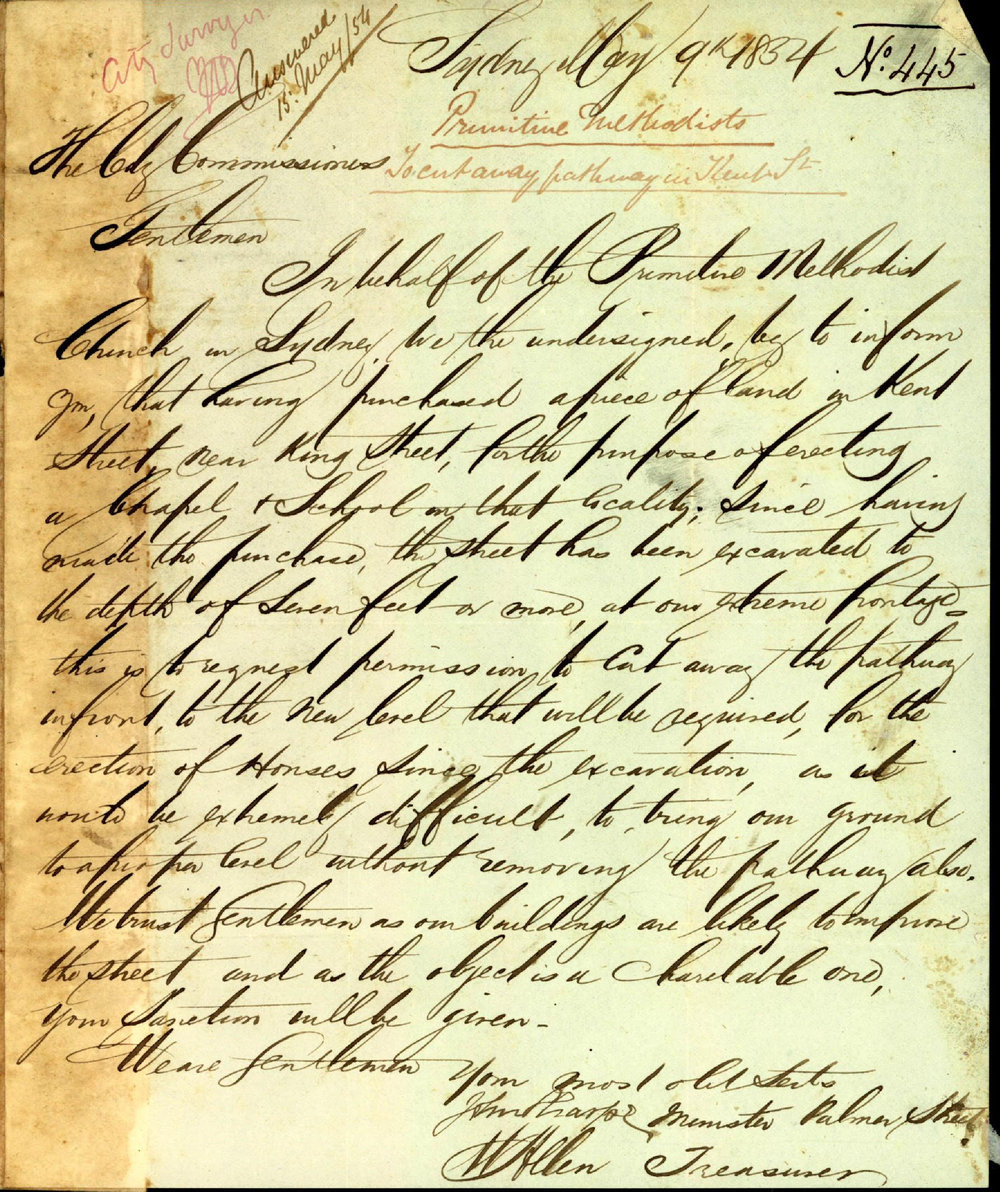 City Surveyor
Answered
15 May/54
Sydney May 9th 1854
No. 445
Primitive Methodists
To cut away pathway in Kent St
The City Commissioners
Gentlemen
In behalf of the Primitive Methodist
Church in Sydney, we the undersigned, beg to inform
you, that having purchased a piece of land in Kent
Street, near King Street, for the purpose of erecting
a Chapel & School in that locality; since having
made the purchase, the street has been excavated to
the depth of seven feet or more, at our extreme frontage=
this is to request permission to cut away the pathway
in front, to the new level that will be required, for the
erection of Houses since the excavation, as it
would be extremely difficult, to bring our ground
to a proper level without removing the pathway also.
We trust Gentlemen as our buildings are likely to improve
the street, and as the object is a Charetable one,
your Sanction will be given-
We are Gentlemen
your most obt Servts
John Sharpe Minister Palmer Street
W Allen Treasurer